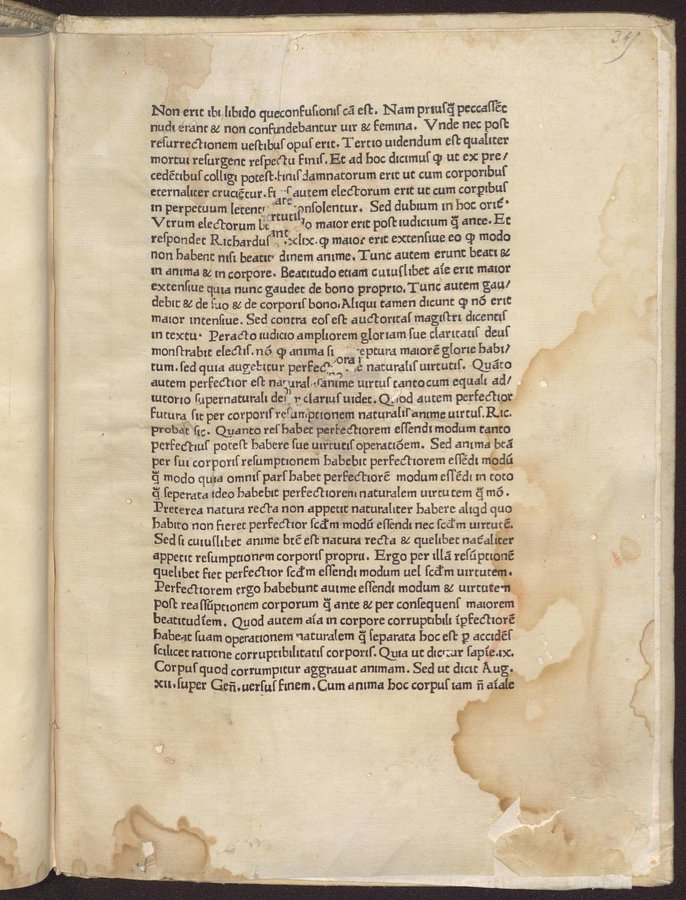 Non erit ibi libido que confusionis cā est. Nam priusq̄ peccassēt
nudi erant & non confundebantur uir & femina. Vnde nec post
resurrectionem uestibus opus erit. Tertio uidendum est qualiter
mortui resurgent respectu finis. Et ad hoc dicimus ꝙ ut ex pre/
cedētibus colligi potest. finis damnatorum erit ut cum corporibus
eternaliter crucientur. autem electorum erit ut cum corpībus
in perpetuum letent consolentur. Sed dubium in hoc oritē.
Vtrum electorum maior erit post iudicium q̄ ante. Et
respondet Richardus .xlix. ꝙ maior erit extensiue eo ꝙ modo
non habent nisi beatit dinem anime. Tunc autem erunt beati &
in anima & in corpore. Beatitudo etiam cuiuslibet aīe erit maior
extensiue quia nunc gaudet de bono proprio. Tunc autem gau/
debit & de suo & de corporis bono. Aliqui tamen dicunt ꝙ nō erit
maior intensiue. Sed contra eos est auctoritas magistri dicentis
in textu. Peracto iudicio ampliorem gloriam sue claritatis deus
monstrabit electis. nō ꝙ anima si reptura maiorē glorie habi/
tum. sed quia augebitur perfec naturalis uirtutis. Quāto
autem perfectior est naturalis anime uirtus tanto cum equali ad/
iutorio supernaturali dei clarius uidet. Quod autem perfectior
futura sit per corporis resumptionem naturalis anime uirtus. Ric.
probat sic. Quanto res habet perfectiorem essendi modum tanto
perfectius potest habere sue uirtutis operatiōem. Sed anima btā
per sui corporis resumptionem habebit perfectiorem essēdi modū
q̄ modo quia omnis pars habet perfectiorē modum essēdi in toto
q̄ seperata ideo habebit perfectiorem naturalem uirtutem q̄ mō.
Preterea natura recta non appetit naturaliter habere aliqd quo
habito non fieret perfectior scdm̄ modū essendi nec scdm̄ uirtutē.
Sed si cuiuslibet anime btē est natura recta & quelibet nat̄aliter
appetit resumptionem corporis proprii. Ergo per illā resūptionē
quelibet fiet perfectior scdm̄ essendi modum uel scdm̄ uirtutem.
Perfectiorem ergo habebunt anime essendi modum & uirtutem
post reassūptionem corporum q̄ ante & per consequens maiorem
beatitudīem. Quod autem aīa in corpore corruptibili īpfectiorē
habeat suam operationem naturalem q̄ separata hoc est ꝑ accidēs
scilicet ratione corruptibilitatis corporis. Quia ut dicitur sapīe.ix.
Corpus quod corrumpitur aggrauat animam. Sed ut dicit Aug.
xii. super Geñ. uersus finem. Cum anima hoc corpus iam ñ aīale